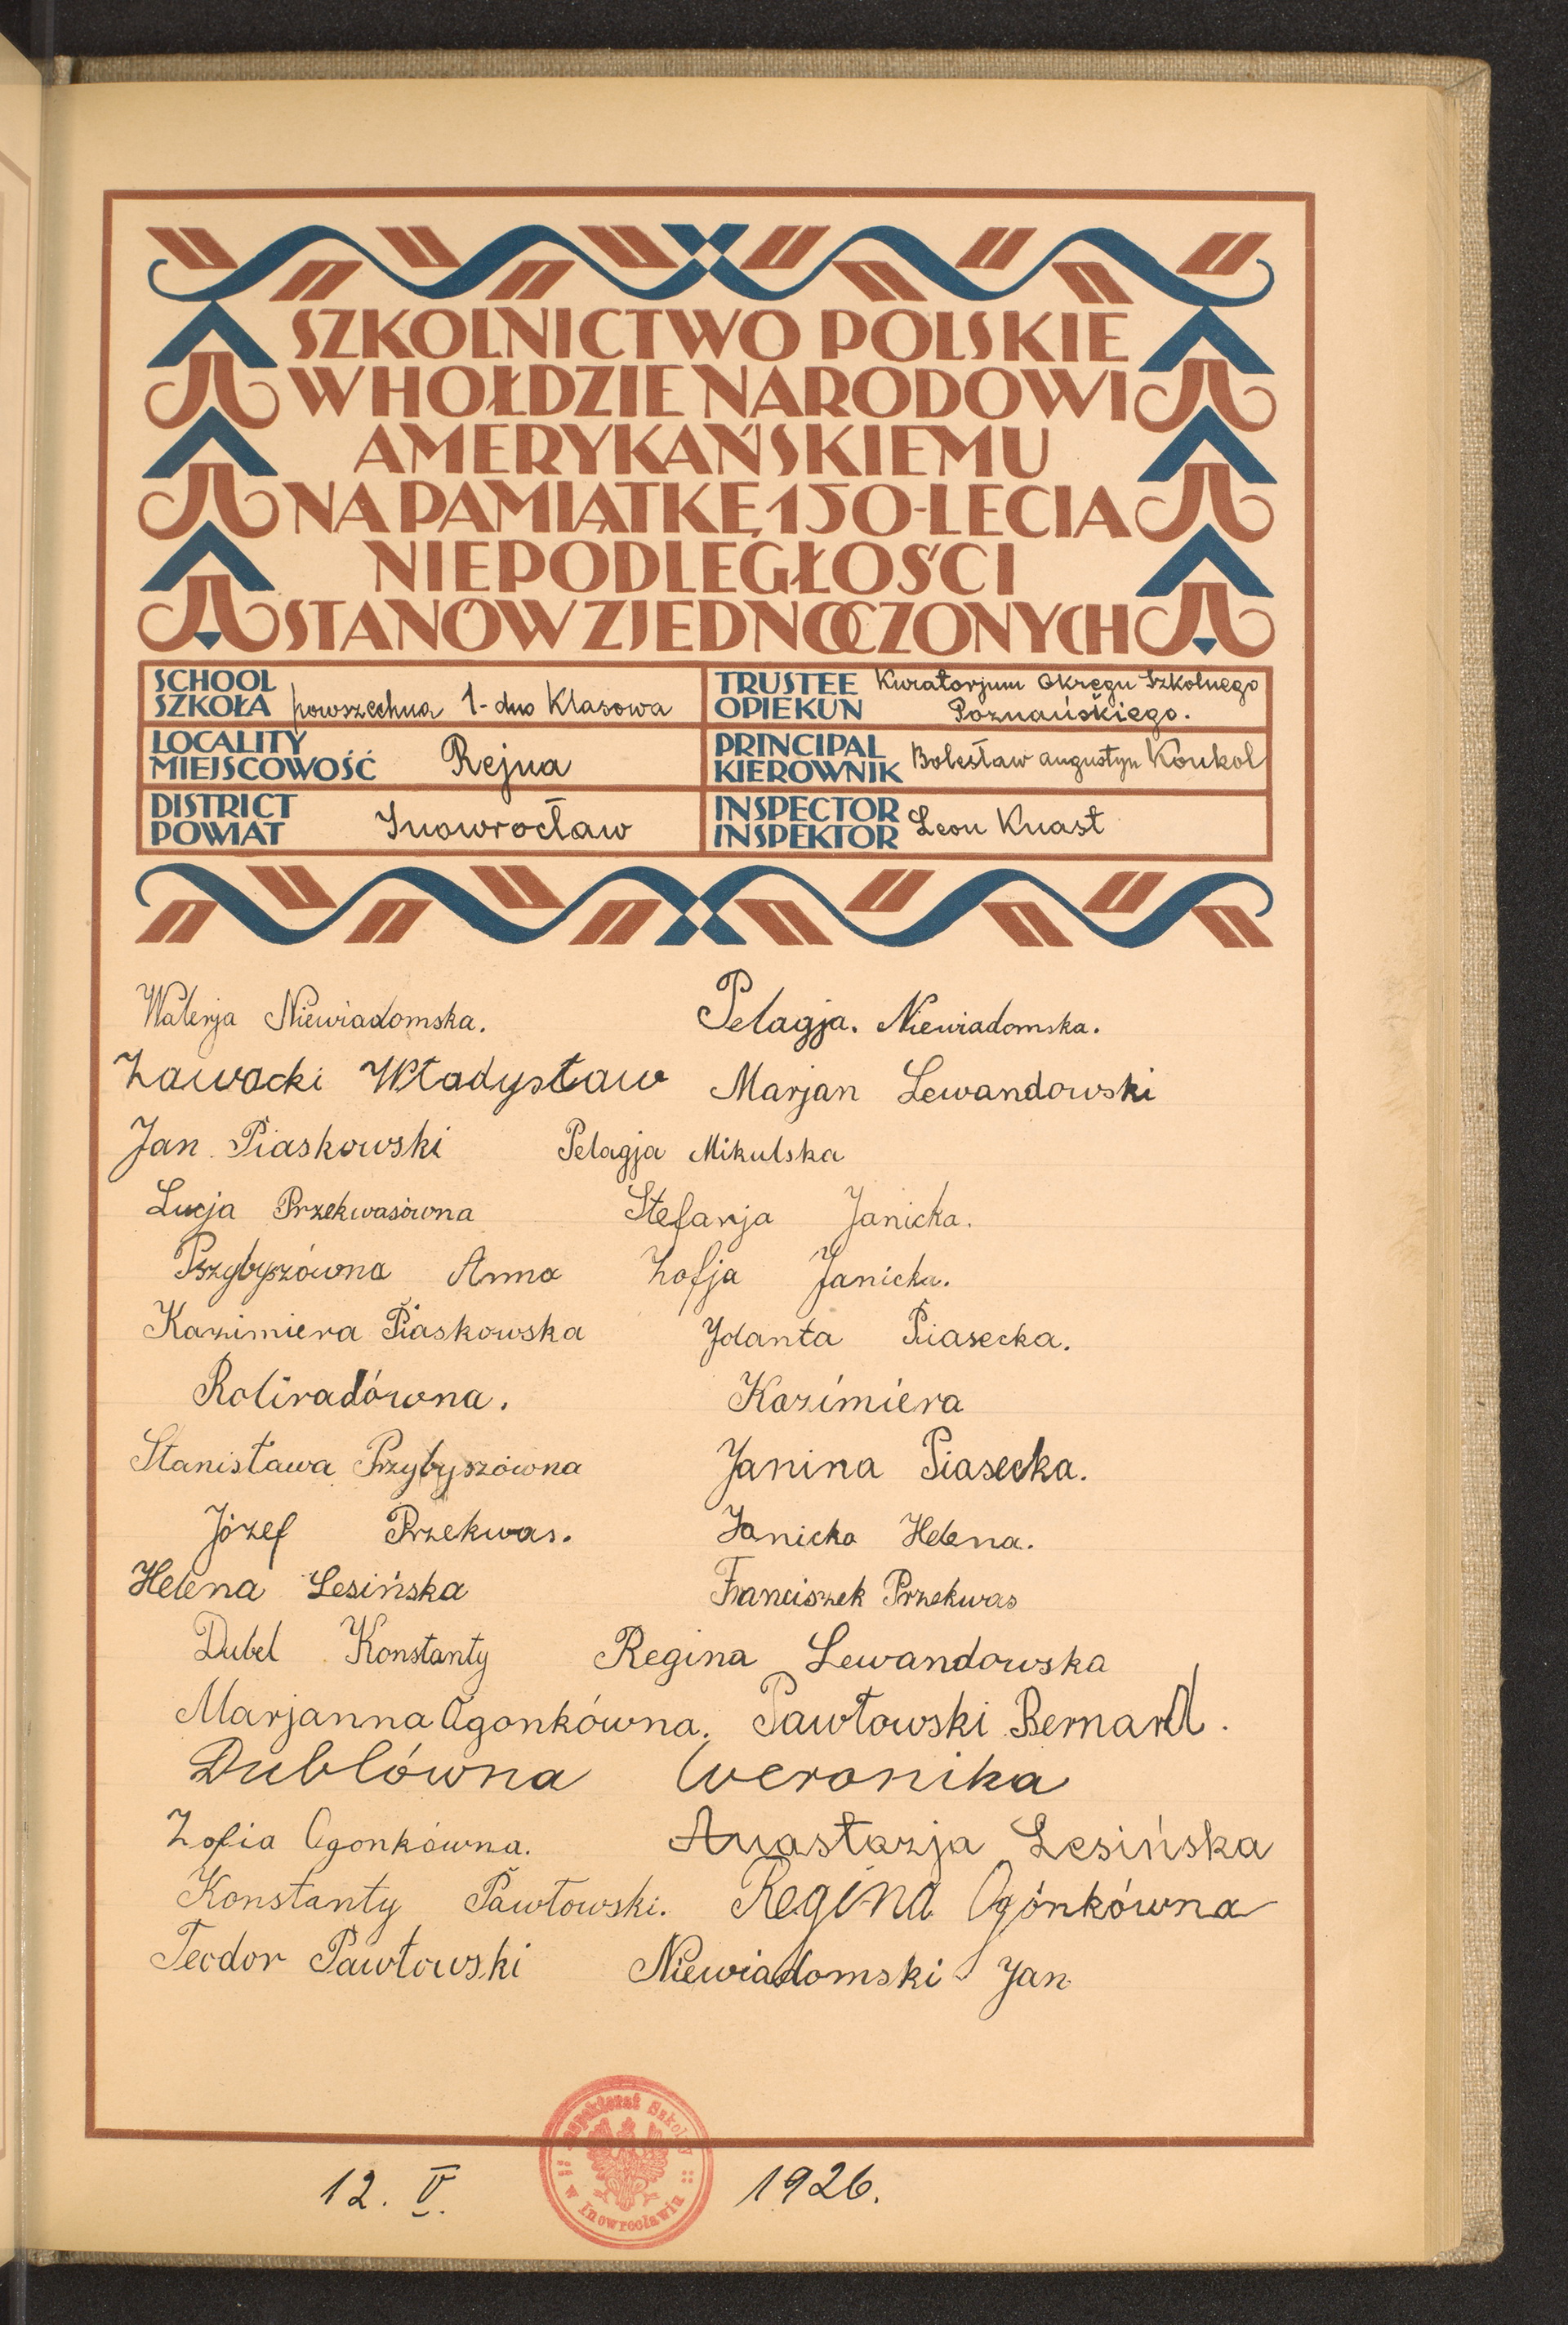 SZKOLNICTWO POLSKIE
W HOŁDZIE NARODOWI
AMERYKAŃSKIEMU
NA PAMIĄTKĘ 150-LECIA
NIEPODLEGŁOŚCI
STANÓW ZJEDNOCZONYCH
SCHOOL
SZKOŁA powszechna 1-dno Klasowa
TRUSTEE Kuratorjum Okręgu Szkolnego
OPIEKUN Poznańskiego.
LOCALITY
MIEJSCOWOŚĆ Rejna
PRINCIPAL
KIEROWNIK Bolesław Augustyn Konkol
DISTRICT
POWIAT Inowrocław
INSPECTOR
INSPEKTOR Leon Knast
Walerja Niewiadomska. Pelagja. Niewiadomska.
Zawacki Władysław Marjan Lewandowski
Jan Piaskowski Pelagja Mikulska
Lucja Przekwasówna Stefanja Janicka.
Przybyszówna Anna Zofja Janicka.
Kazimiera Piaskowska Jolanta Piasecka.
Rotiradówna. Kazimiera
Stanisława Przybyszówna Janina Piasecka.
Józef Przekwas. Janicka Helena.
Helena Lesińska Franciszek Przekwas
Dubel Konstanty Regina Lewandowska
Marjanna Ogonkówna. Pawłowski Bernard.
Dublówna Weronika
Zofia Ogonkówna. Anastazja Lesińska
Konstanty Pawłowski. Regina Ogónkówna
Teodor Pawłowski Niewiadomski Jan
Inspektorat Szkolny
w Inowrocławiu
12. V. 1926.